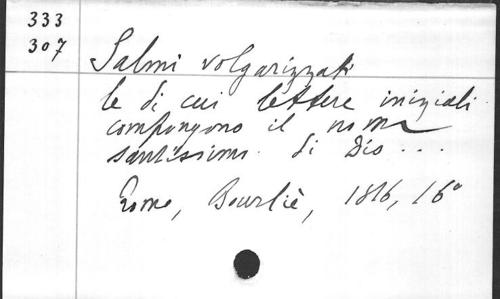 333
307
Salmi volgarizzati
le di cui lettere iniziali
compongono il nome
santissimo di Dio ...
Roma, Bourliè, 1816, 16°